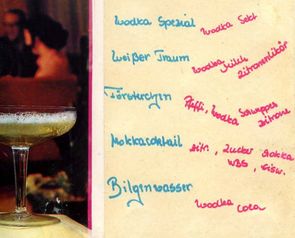 Wodka Spezial
Wodka Sekt
Weißer Traum
Wodka, Milch
Zitronenlikör
Försterchen
Pfeffi, Wodka, Schweppes
Zitrone
Mokkacocktail
Zitr., Zucker, Mokka
WBS, Eisw.
Bilgenwasser
Wodka Cola